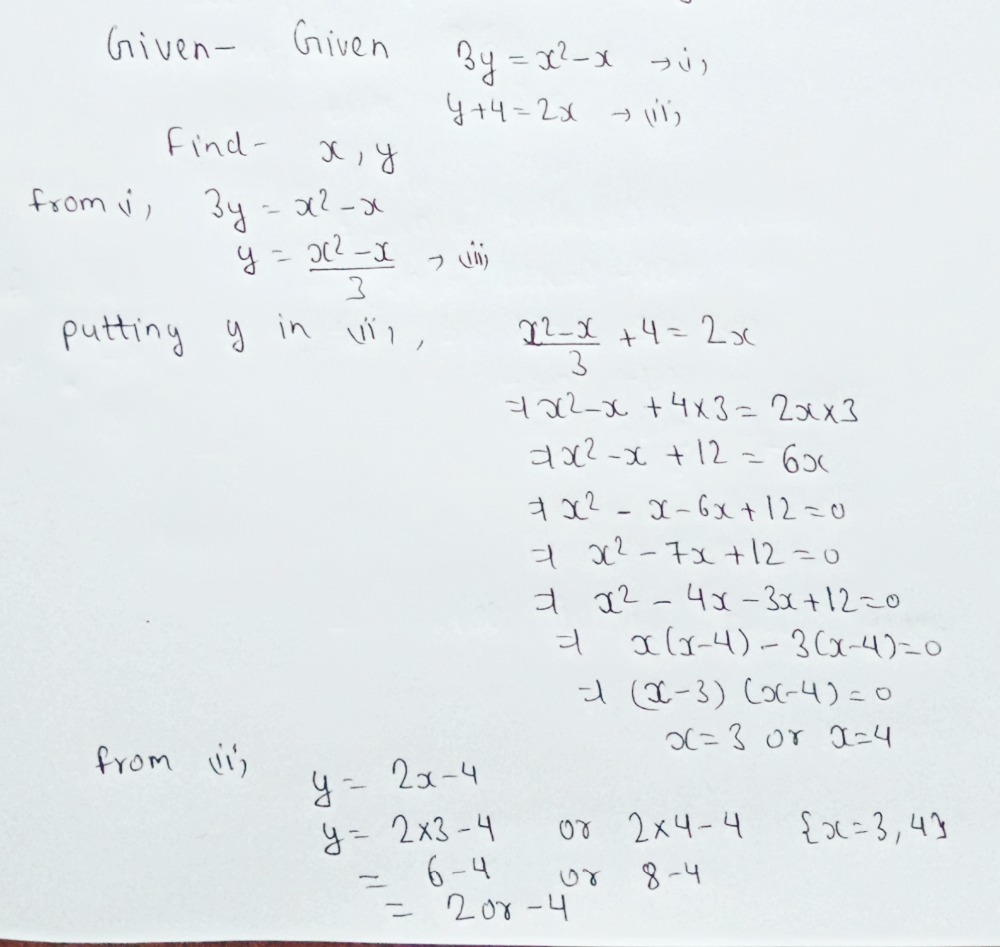 Given- Given 3y = x² - x → i,
y + 4 = 2x → (ii,
Find- x, y
from i, 3y = x² - x
y = (x² - x)/3 → (iii,
putting y in (ii), (x² - x)/3 + 4 = 2x
⇒ x² - x + 4×3 = 2x×3
⇒ x² - x + 12 = 6x
⇒ x² - x - 6x + 12 = 0
⇒ x² - 7x + 12 = 0
⇒ x² - 4x - 3x + 12 = 0
⇒ x(x-4) - 3(x-4) = 0
⇒ (x-3) (x-4) = 0
x = 3 or x = 4
from (ii,
y = 2x - 4
y = 2×3 - 4 or 2×4 - 4 {x = 3, 4}
= 6 - 4 or 8 - 4
= 2 or - 4